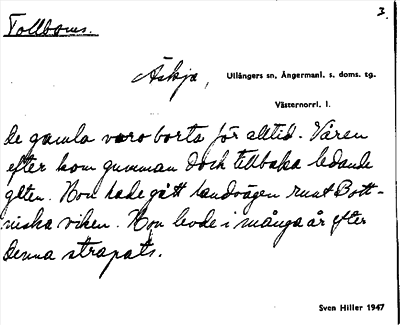 3.
Tollboms.
Äskja, Ullångers sn, Ångermanl. s. doms. tg.
Västernorrl. l.
De gamla voro borta för alltid. Våren
efter kom gumman dock tillbaka ledande
geten. Hon hade gått landvägen runt Bott-
niska viken. Hon levde i många år efter
denna strapats.
Sven Hiller 1947